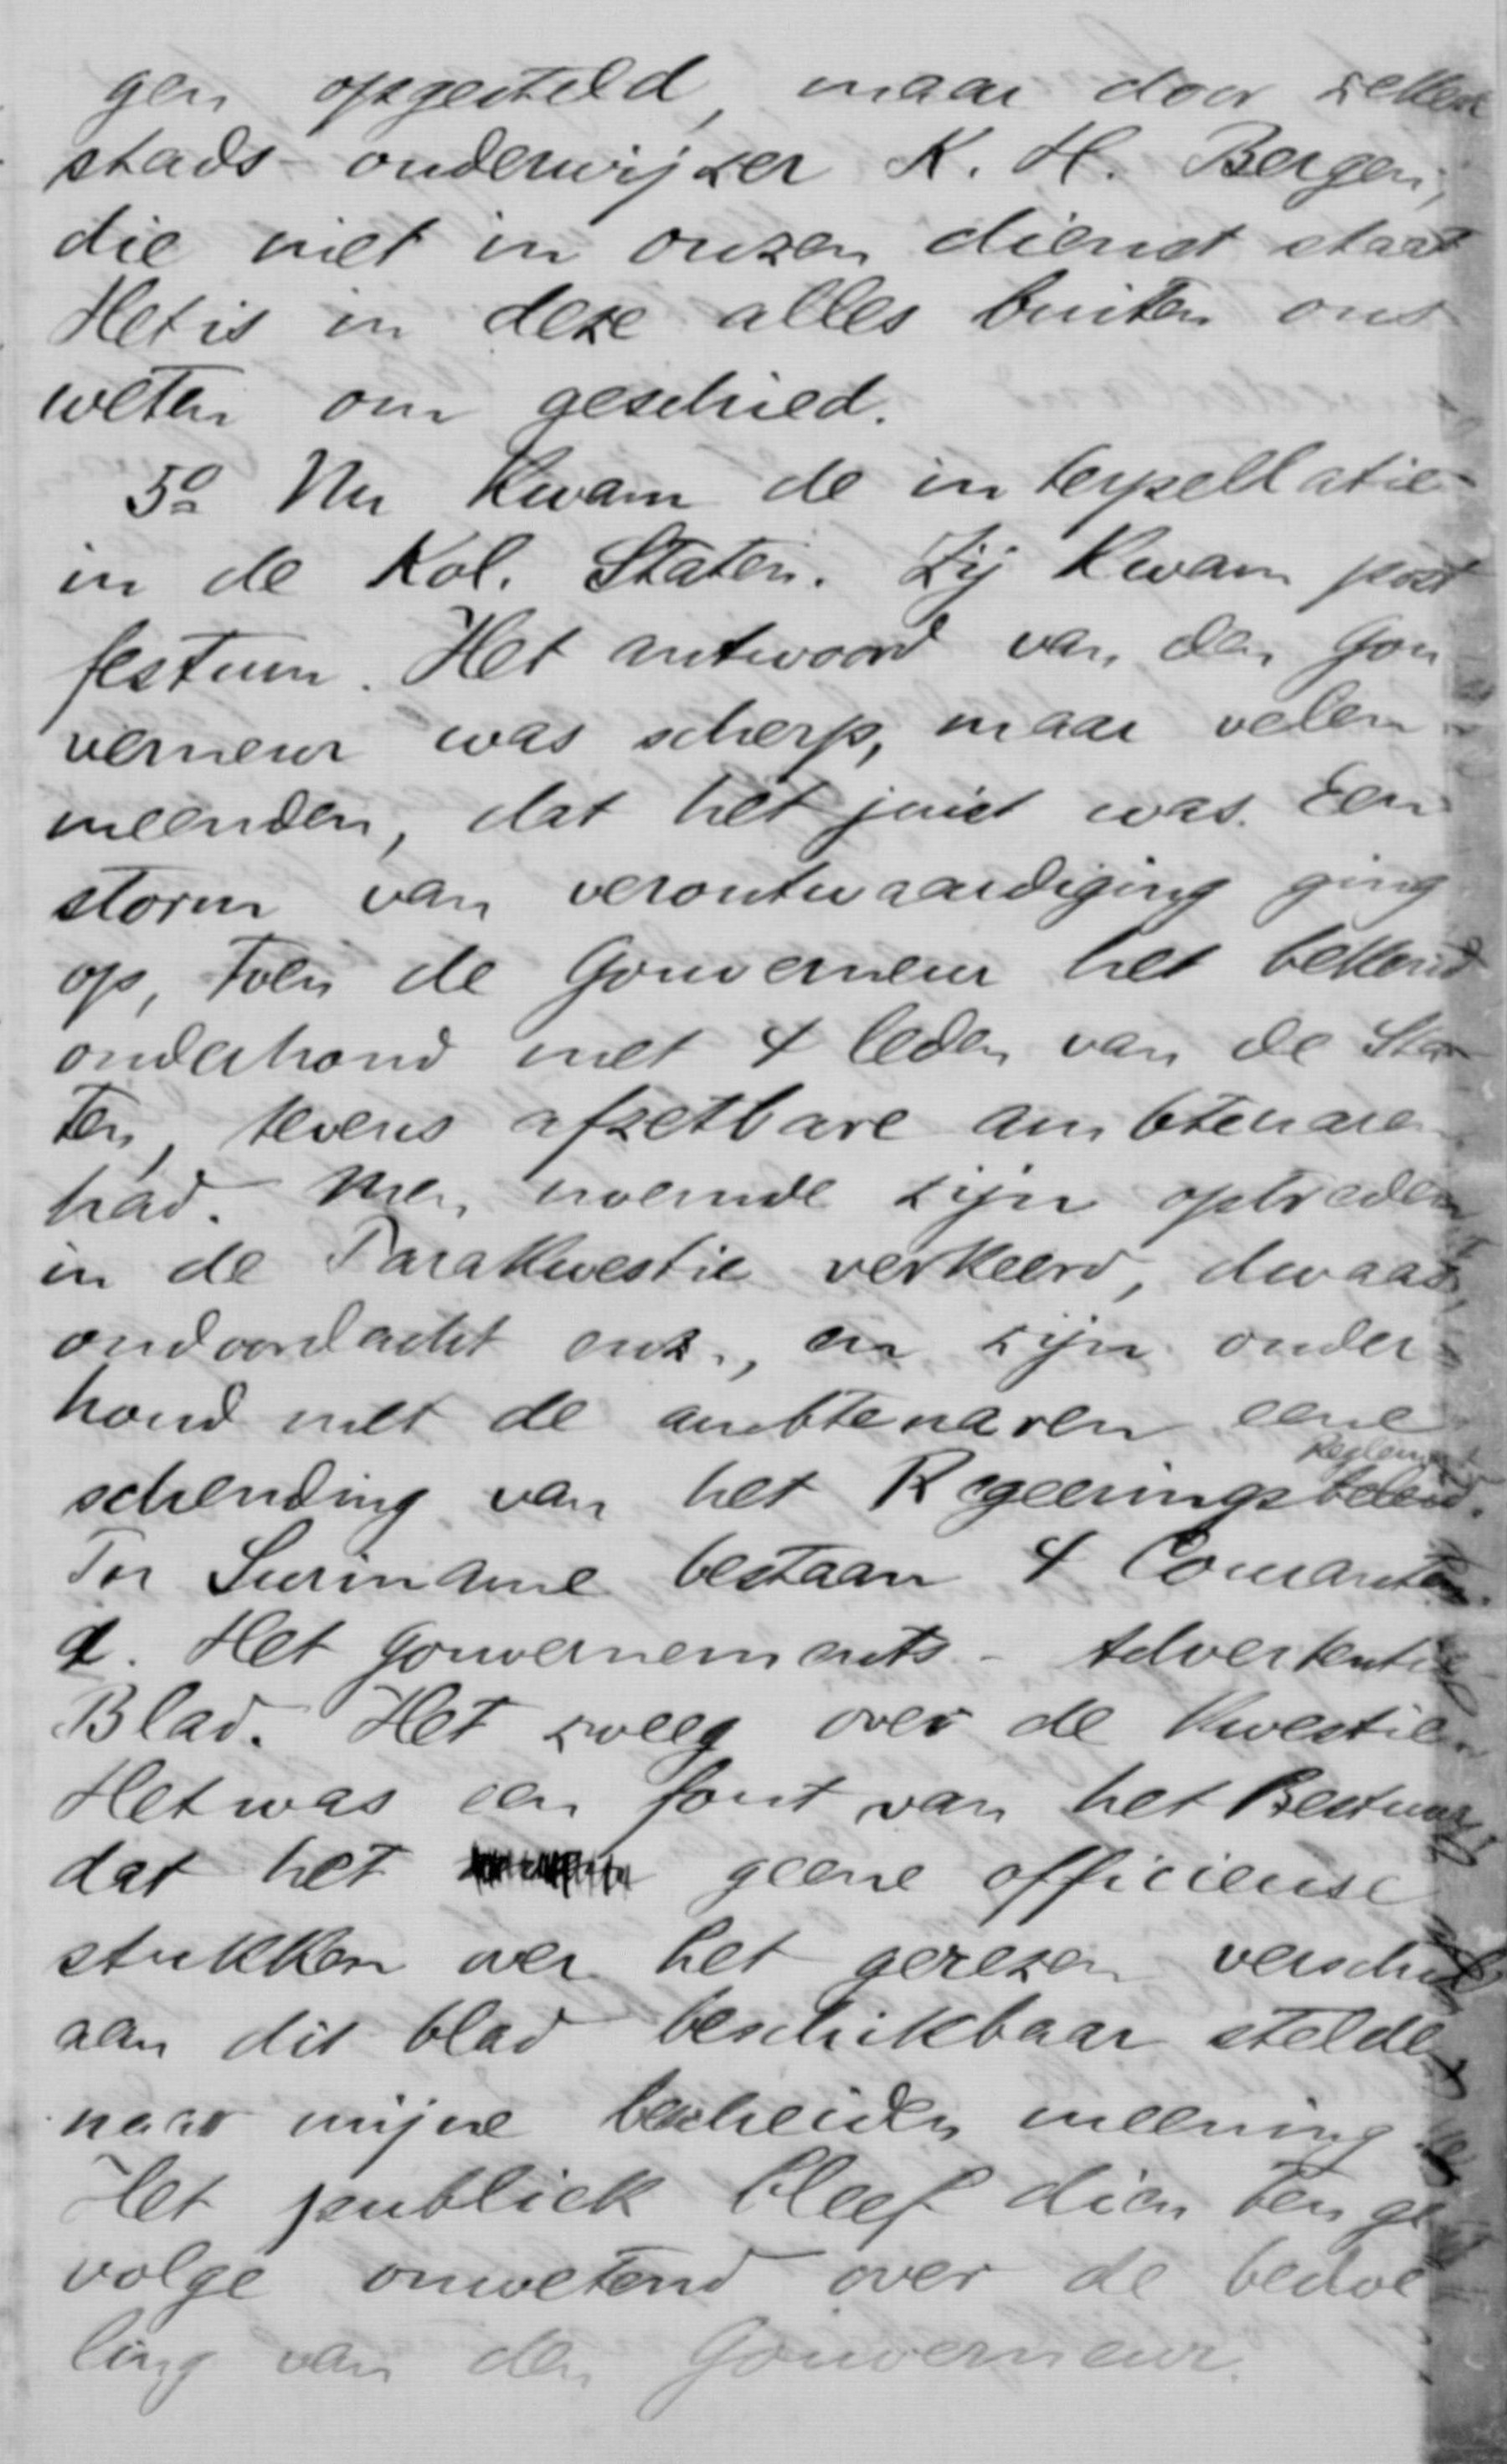 gen opgesteld, maar door zekere
stads-onderwijzer K. H. Bergen,
die niet in onzen dienst staat
Het is in deze alles buiten ons
weten om geschied.
5º Nu Kwam de interpellatie
in de Kol. Staten. Zij Kwam post
festum. Het antwoord van den Gou
verneur was scherp, maar velen
meenden, dat het juist was. Een
storm van verontwaardiging ging
op, toen de Gouverneur het bekend
onderhoud met 4 leden van de Sta
ten, tevens afzetbare ambtenaren
had. Men noemde zijn optreden
in de ParaKwestie verkeerd, dwaas,
ondoordacht enz., en zijn onder-
houd met de ambtenaren eene
Reglement
schending van het Regeeringsbeleid.
In Suriname bestaan 4 Couranten.
a. Het Gouvernements-Advertentie
Blad. Het zweeg over de Kwestie.
Het was een fout van het Bestuur,
dat het geene officieuse
stukken over het gerezen verschil
aan dit blad beschikbaar stelde,
naar mijne bescheiden meening.
Het publiek bleef dien ten ge
volge onwetend over de bedoe
ling van den Gouverneur.